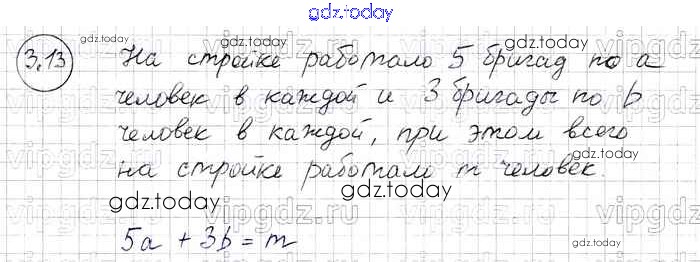 gdz.today
3.13 На стройке работало 5 бригад по a
человек в каждой и 3 бригады по b
человек в каждой, при этом всего
на стройке работало m человек.
5a + 3b = m
gdz.today
gdz.today
gdz.today
gdz.today
gdz.today
gdz.today
gdz.today
gdz.today
vipgdz.ru
vipgdz.ru
vipgdz.ru